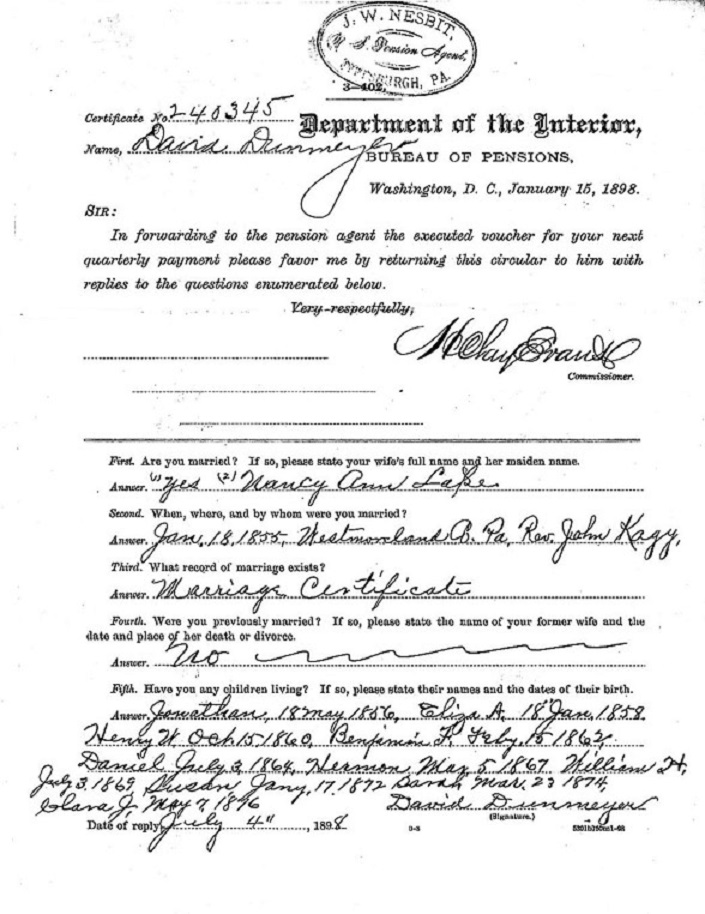 J. W. NESBIT,
U. S. Pension Agent,
PITTSBURGH, PA.
3-402.
Certificate No. 240345
Department of the Interior,
Name, David Dunmeyer
BUREAU OF PENSIONS,
Washington, D. C., January 15, 1898.
SIR:
In forwarding to the pension agent the executed voucher for your next
quarterly payment please favor me by returning this circular to him with
replies to the questions enumerated below.
Very respectfully,
H Clay Evans
Commissioner.
First. Are you married? If so, please state your wife's full name and her maiden name.
Answer. (1) Yes (2) Nancy Ann Lape
Second. When, where, and by whom were you married?
Answer. Jan, 18, 1855, Westmoreland Co. Pa, Rev. John Kagy,
Third. What record of marriage exists?
Answer. Marriage Certificate
Fourth. Were you previously married? If so, please state the name of your former wife and the
date and place of her death or divorce.
Answer. No
Fifth. Have you any children living? If so, please state their names and the dates of their birth.
Answer. Jonathan, 18 May 1856, Eliza A, 18 Jan, 1858.
Henry W. Oct. 15 1860, Benjamin F. Feby. 15 1862,
Daniel July 3, 1864, Hermon, May, 5 1867 William H,
July 3, 1869, Susan, Jany, 17, 1872 Sarah Mar. 23 1874,
Clara J, May 7, 1876 David Dunmeyer
(Signature.)
Date of reply, July 4", 1898